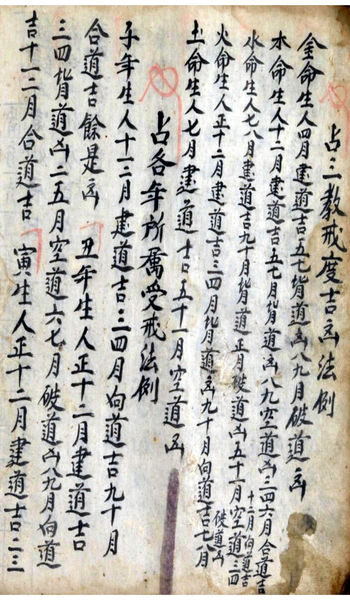 占三教戒度吉凶法例
金命生人四月建道吉五七皆道凶八九月破道凶
木命生人十二月建道吉五七月皆道凶八九空道凶二四六月合道吉
水命生人七八月建道吉九十月皆道凶正月破道凶五十一月空道三四
十二月向道吉
火命生人正十二月建道吉三四月皆道凶九十月向道吉七八月
破道凶
土命生人七月建道吉五十一月空道凶
占各年所屬受戒法例
子年生人十一二月建道吉三四月向道吉九十月
合道吉餘是凶 丑年生人正十二月建道吉
三四皆道凶二五月空道六七月破道凶八九月向道
吉十一二月合道吉 寅生人正十二月建道吉二三